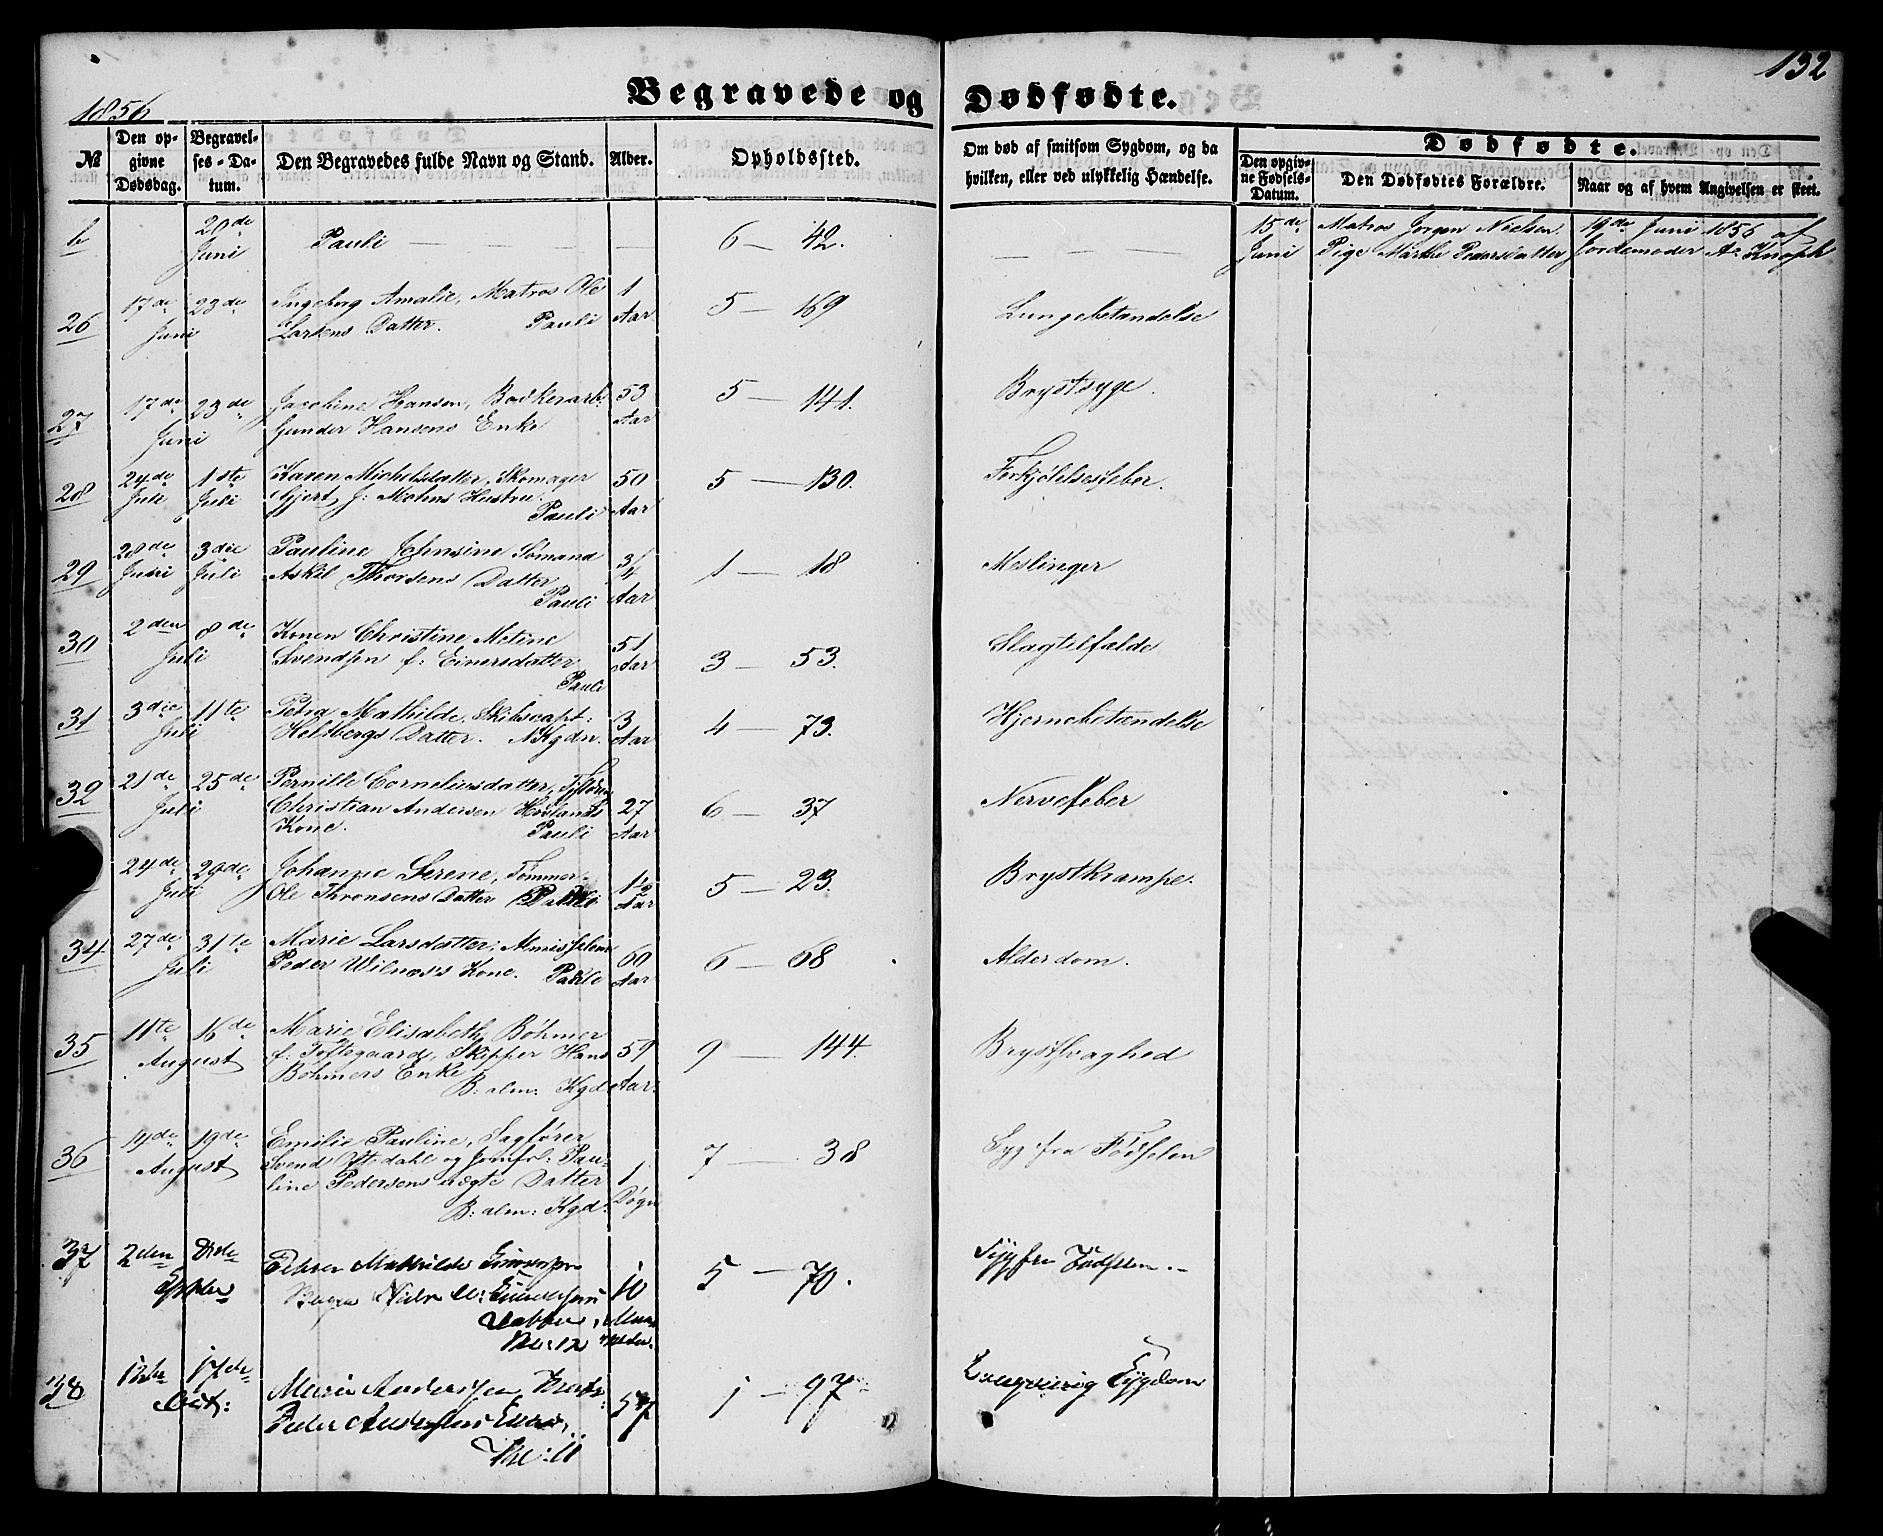 132
1856
Begravede og Dødfødte.
№
Den opgivne Dødsdag.
Begravelses-Datum.
Den Begravedes fulde Navn og Stand.
Alder.
Opholdssted.
Om død af smitsom Sygdom, og da hvilken, eller ved ulykkelig Hændelse.
Dødfødte.
Den opgivne Fødsels-Datum.
Den Dødfødtes Forældre.
Naar og af hvem Angivelsen er skeet.
b 20de Juni Pauli — — — — 6 — 42. — — —
15de Juni Matros Jørgen Nielsen
Pige Märthe Pedersdatter
19de Juni 1856 af
Jordemoder A. Knoph
26 17de 23de Juni Ingeborg Amalie, Matros Ole
Larsens Datter. Pauli
1 Aar 5 — 169 Lungebetændelse
27 17de 23de Juni Jacobine Hansen, Bødkerarb:
Gunder Hansens Enke
53 Aar 5 — 141. Brystsyge.
28 24de Juli 1ste Juli Karen Michelsdatter, Skomager
Gjert J: Mohns Hustru.
Pauli
50 Aar 5 — 130. Forkjølelsesfeber.
29 28de Juni 3die Juli Pauline Johnsine Sømand
Askil Thorsens Datter
Pauli
3/4 Aar 1 — 18 Meslinger
30 2den 8de Juli Konen Christine Metine
Svendsen f: Einersdatter
Pauli
51 Aar 3 — 53. Slagtilfælde
31 3die 11te Juli Petra Mathilde, Skibscapt:
Heltbergs Datter. N. Kgdn.
3 Aar 4 — 73. Hjernebetændelse
32 21de 25de Juli Pernille Corneliusdatter,
Christian Andersen
Kone. Pauli
27 Aar 6 — 37 Nervefeber
24de 29de Juli Johanne Serene, Tømmer-
Ole Thronsens Datter Pauli
1½ Aar 5 — 23. Brystkrampe.
34 27de 31te Juli Marie Larsdatter, Almisselem
Peder Wilnæs's Kone. Pauli
60 Aar 6 — 68 Alderdom.
35 11te 16de August Marie Elisabeth Bøhmer
f: Toftegaard, Skipper Hans
Bøhmers Enke
B: alm: Kgd
59 Aar. 9 — 144. Brystsvaghed
36 14de 19de August Emilie Pauline, Sagfører
Svend Ottedahl og Jomfr: Pau-
line Pedersens uægte Datter
B: alm: Kgd.
1 Døgn 7 — 38 Syg fra Fødselen
37 2den Petra Mathilde
Datter,
10 5 — 70. Syg fra Fødselen.
38 12te 17de Oct: Marie Andersen,
Peder Andersens Enke,
57 1 — 97 Langvarig Sygdom